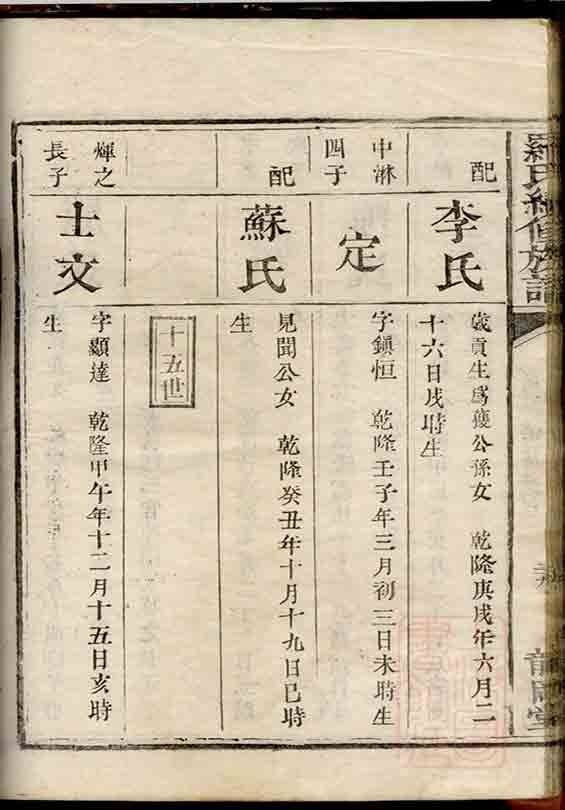 羅氏續修族譜
配
李氏
歲貢生爲獲公孫女　乾隆庚戌年六月二
十六日戌時生
中淋
四子
定
字鎮恒　乾隆壬子年三月初三日未時生
配
蘇氏
見聞公女　乾隆癸丑年十月十九日巳時
生
十五世
煇之
長子
士文
字顯達　乾隆甲午年十二月十五日亥時
生